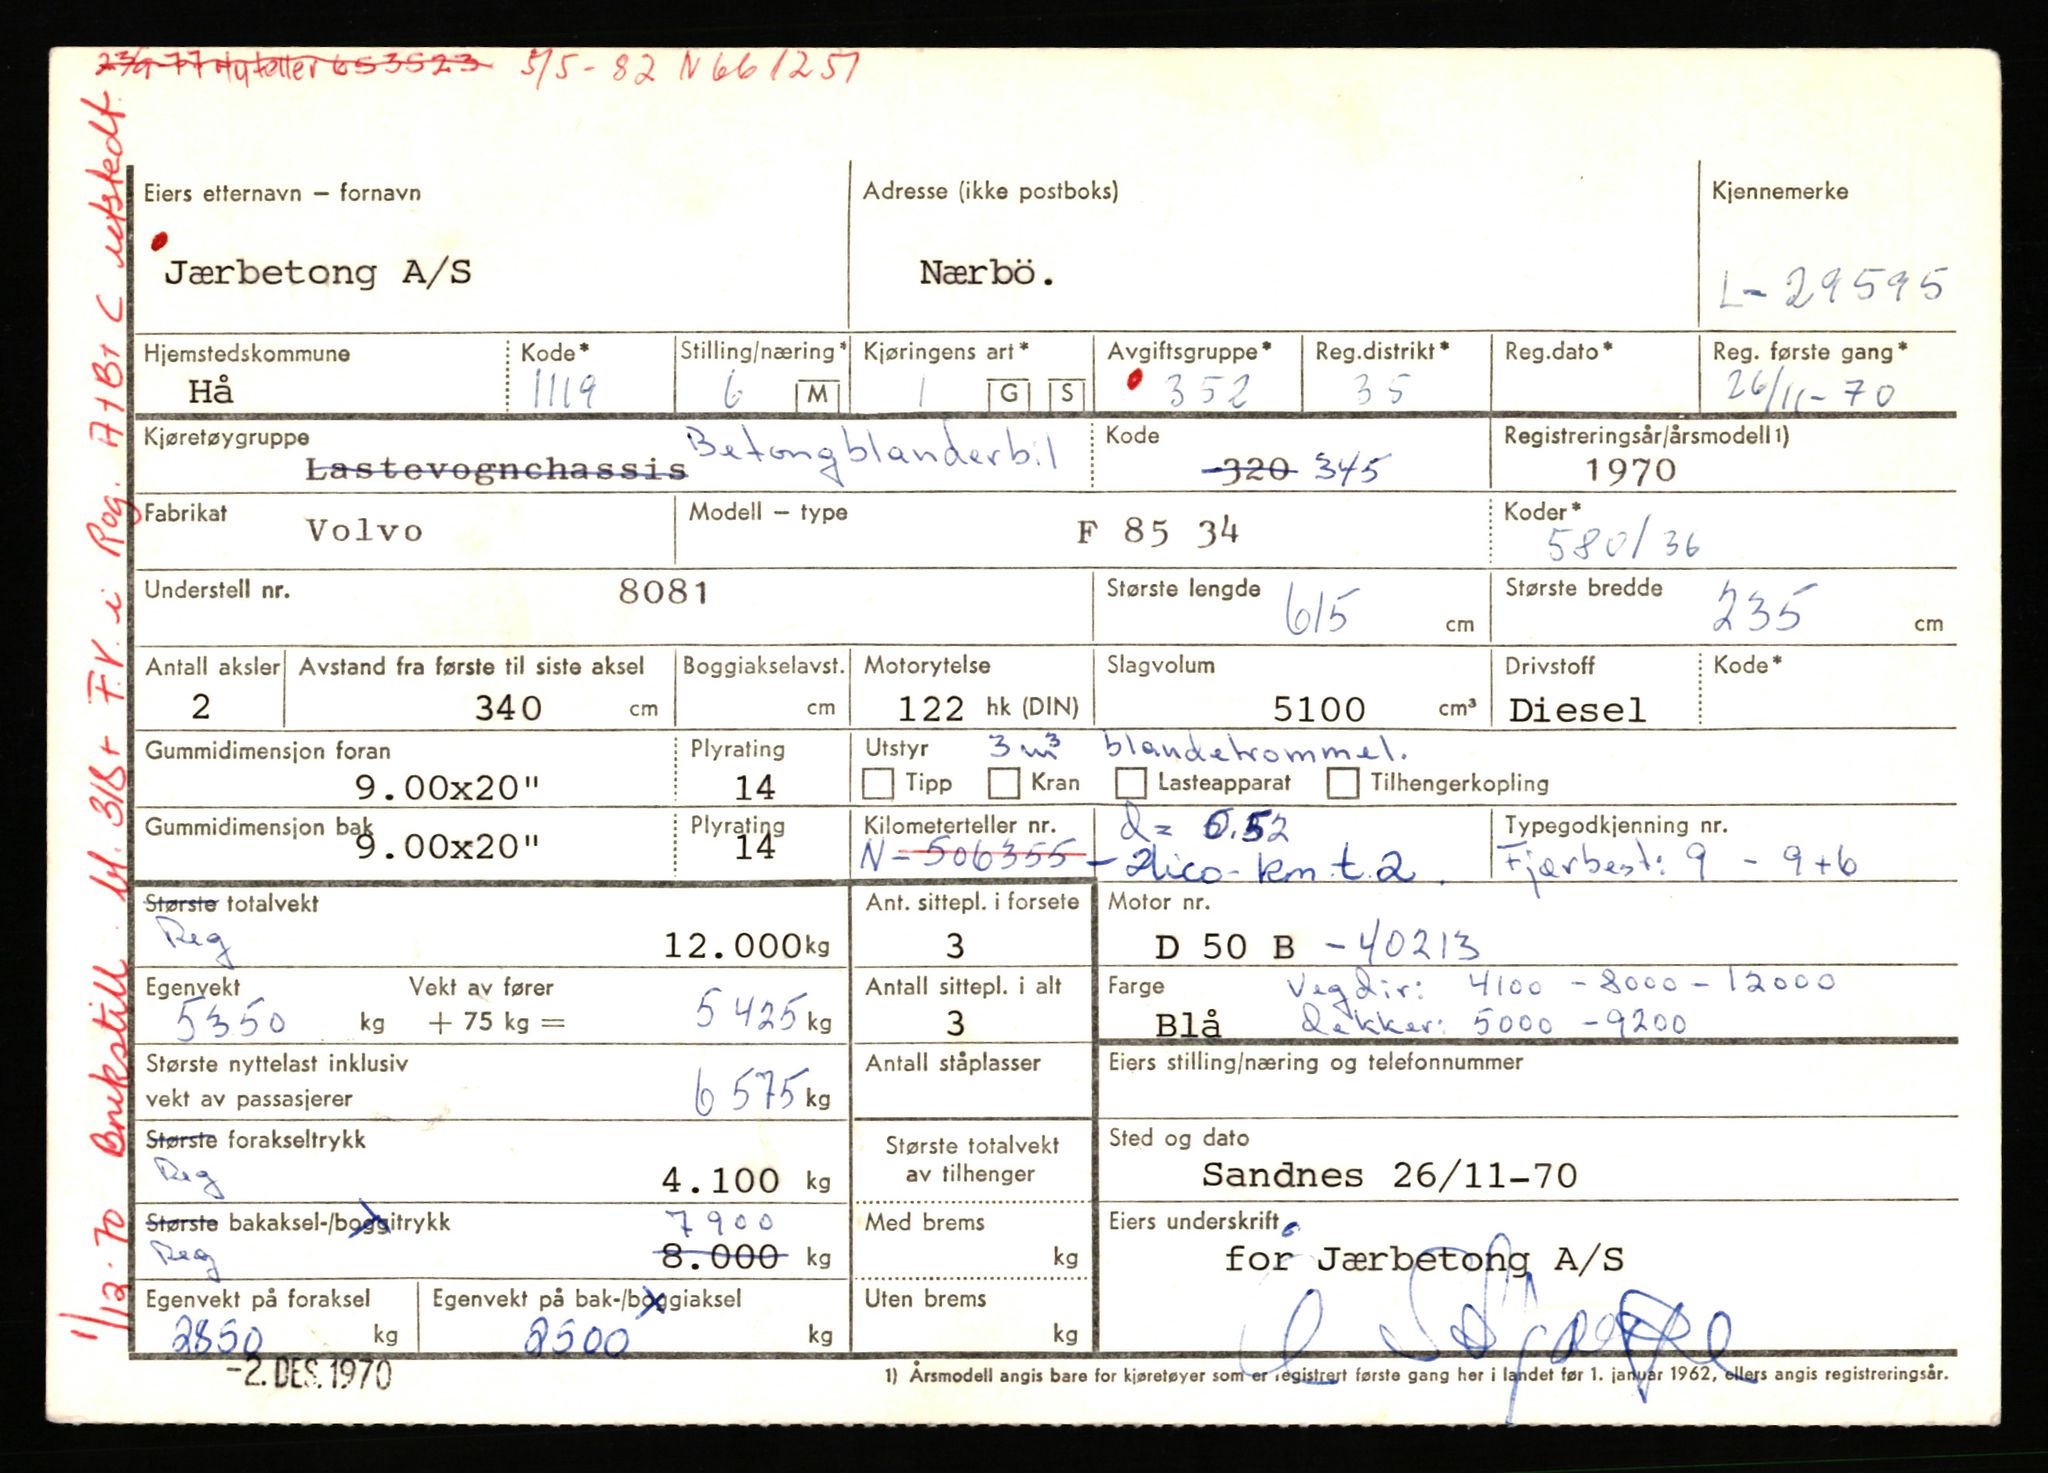 23/9-77 Ny teller 653523 5/5-82 N661251
1/12-70 Brukstill. bl. 3/B+ F.V. i Rog. A+B+C utstedt.
Eiers etternavn – fornavn Adresse (ikke postboks) Kjennemerke
Jærbetong A/S Nærbö. L-29595
Hjemstedskommune Kode* Stilling/næring* Kjøringens art* Avgiftsgruppe* Reg.distrikt* Reg.dato* Reg. første gang*
Hå 1119 6 M 1 G S 352 35 26/11-70
Kjøretøygruppe Betongblanderbil Kode Registreringsår/årsmodell1)
Lastevognchassis 320 345 1970
Fabrikat Modell – type Koder*
Volvo F 85 34 580/36
Understell nr. 8081 Største lengde 615 cm Største bredde 235 cm
Antall aksler Avstand fra første til siste aksel Boggiakselavst. Motorytelse Slagvolum Drivstoff Kode*
2 340 cm cm 122 hk (DIN) 5100 cm³ Diesel
Gummidimensjon foran Plyrating Utstyr 3 m³ blandetrommel.
9.00x20" 14 Tipp Kran Lasteapparat Tilhengerkopling
Gummidimensjon bak Plyrating Kilometerteller nr. d= 0.52 Typegodkjenning nr.
9.00x20" 14 N-506355- km.t.2. Fjærbest: 9 - 9+6
Største totalvekt Ant. sittepl. i forsete Motor nr.
Reg 12.000 kg 3 D 50 B -40213
Egenvekt Vekt av fører Antall sittepl. i alt Farge Vegdir: 4100 - 8000 - 12000
5350 kg + 75 kg = 5425 kg 3 Blå dekker: 5000 - 9200
Største nyttelast inklusiv Antall ståplasser Eiers stilling/næring og telefonnummer
vekt av passasjerer 6575 kg
Største forakseltrykk Største totalvekt Sted og dato
Reg 4.100 kg av tilhenger Sandnes 26/11-70
Største bakaksel-/boggitrykk 7900 Med brems Eiers underskrift
Reg 8.000 kg kg for Jærbetong A/S
Egenvekt på foraksel Egenvekt på bak-/boggiaksel Uten brems
2850 kg 2500 kg kg
-2. DES. 1970 1) Årsmodell angis bare for kjøretøyer som er registrert første gang her i landet før 1. januar 1962, ellers angis registreringsår.